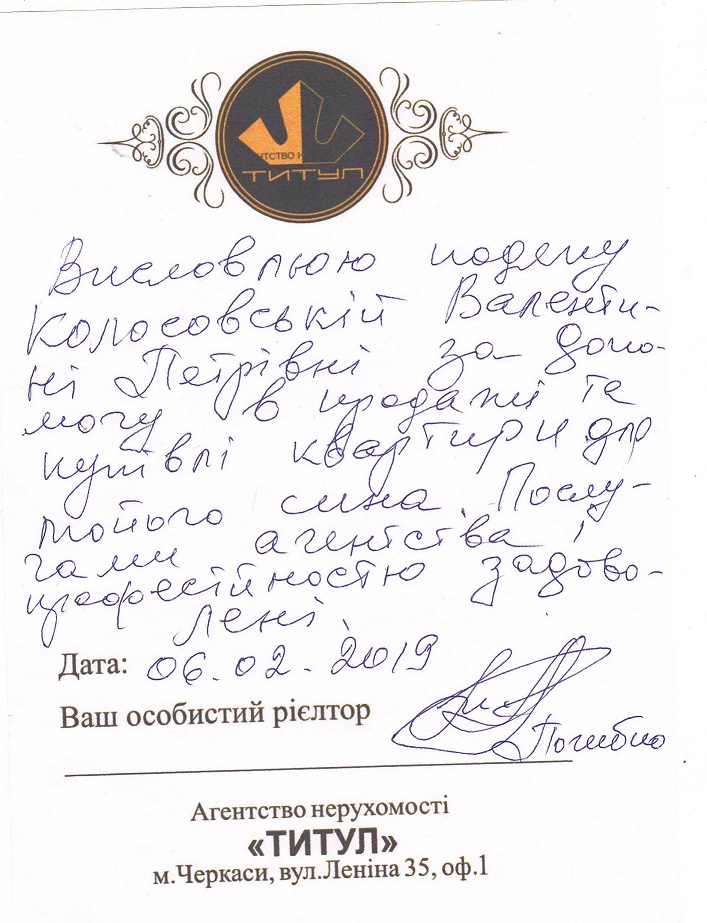 ТСТВО Н
ТИТУЛ
Висловлюю подяку
Колосовській Валенти-
ні Петрівні за допо-
могу в продажі та
купівлі квартири для
мойого сина. Послу-
гами агентства і
професійностю задово-
лені.
Дата: 06.02.2019
Ваш особистий рієлтор
Агентство нерухомості
«ТИТУЛ»
м.Черкаси, вул.Леніна 35, оф.1